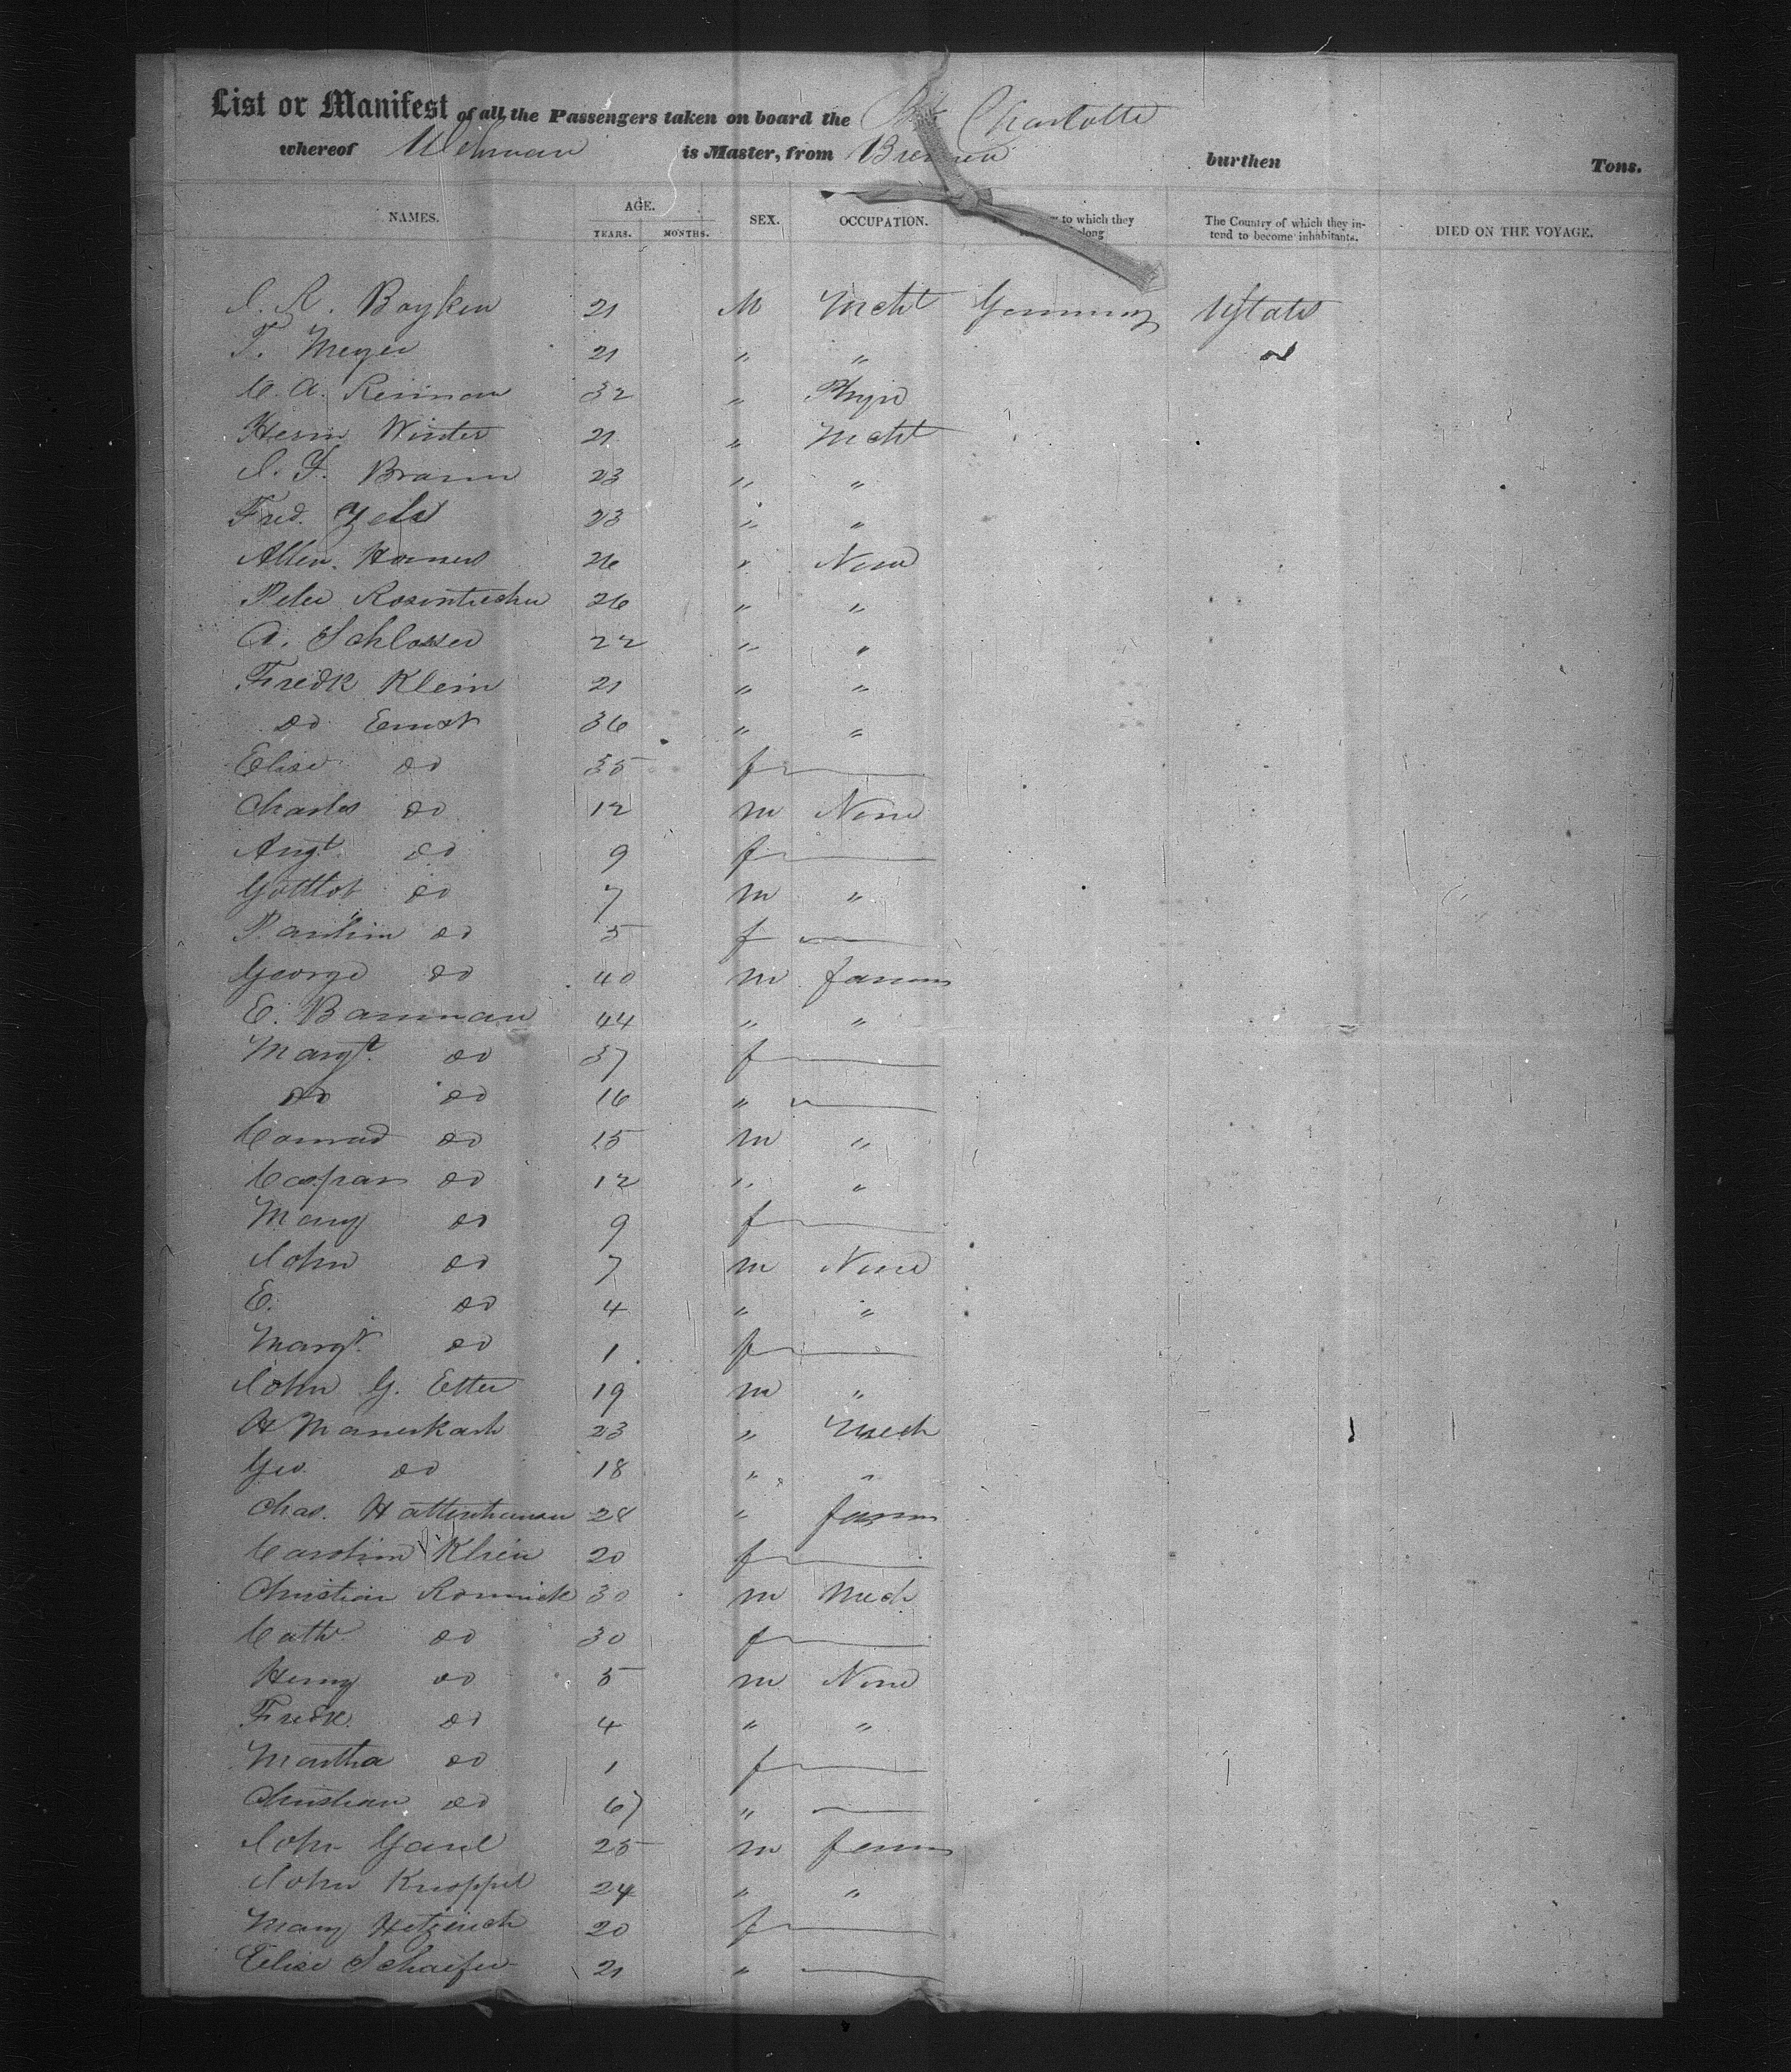 List or Manifest of all the Passengers taken on board the Charlotte
whereof is Master, from Bremen burthen Tons.
NAMES. AGE. YEARS. MONTHS. SEX. OCCUPATION. to which they long The Country of which they intend to become inhabitants. DIED ON THE VOYAGE.
Boyken 21 M Mcht Germany UStates
T. Meyer 21 " " do
C. A. 32 "
Herm Winter 21 " Mcht
J. F. Braun 23 " "
Fred. 23 " "
26 " None
Peter 26 " "
A. Schlosser 22 " "
Fredk Klein 21 " "
do Ernst 36 " "
Elise do 35 f
Charles do 12 m None
Augt. do 9 f
Gottlob do 7 m "
do 5 f
George do 40 m farmr
E. Barnman 44 " "
Margt. do 37 f
do do 16 "
Conrad do 15 m "
Caspar do 12 " "
Mary do 9 f
John do 7 m None
E. do 4 " "
Margt. do 1 f
John G. Etter 19 m "
H 23 " Mech
Geo do 18 " "
Chas. 28 " farmr
Klein 20 f
Christian 30 m Mech
Cath. do 30 f
Henry do 5 m None
Fredk. do 4 " "
Martha do 1 f
Christian do 67 "
John 25 m farmr
John Knoppel 24 " "
Mary 20 f
Elise Schaefer 21 "